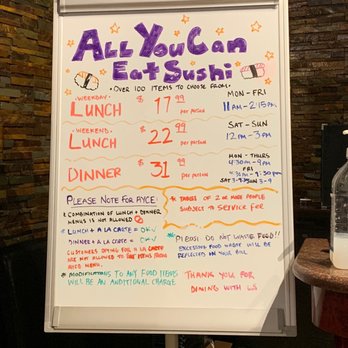 ALL YOU CAN
EAT SUSHI
OVER 100 ITEMS TO CHOOSE FROM
WEEKDAY
LUNCH $17.99 per person
MON - FRI
11AM - 2:15PM
WEEKEND
LUNCH $22.99 per person
SAT - SUN
12PM - 3PM
DINNER $31.99 per person
MON - THURS
4:30PM - 9PM
FRI
SAT SUN
PLEASE NOTE FOR AYCE:
COMBINATION OF LUNCH + DINNER
MENUS IS NOT ALLOWED
LUNCH + A LA CARTE = OK
DINNER + A LA CARTE = OK
CUSTOMERS DINING FOR A LA CARTE
ARE NOT ALLOWED TO ITEMS FROM
AYCE MENU.
* MODIFICATIONS TO ANY FOOD ITEMS
WILL BE AN ADDITIONAL CHARGE
* TABLES OF 2 OR MORE PEOPLE
SUBJECT TO SERVICE FEE
*PLEASE DO NOT WASTE FOOD!!
EXCESSIVE FOOD WASTE WILL BE
REFLECTED ON YOUR BILL
THANK YOU FOR
DINING WITH US